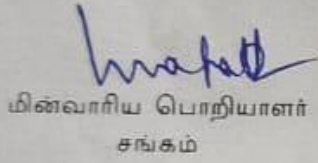 மின்வாரிய பொறியாளர்
சங்கம்